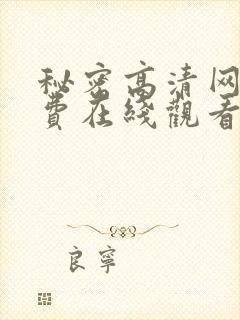 秘密高清网
費在綫觀看
良寧